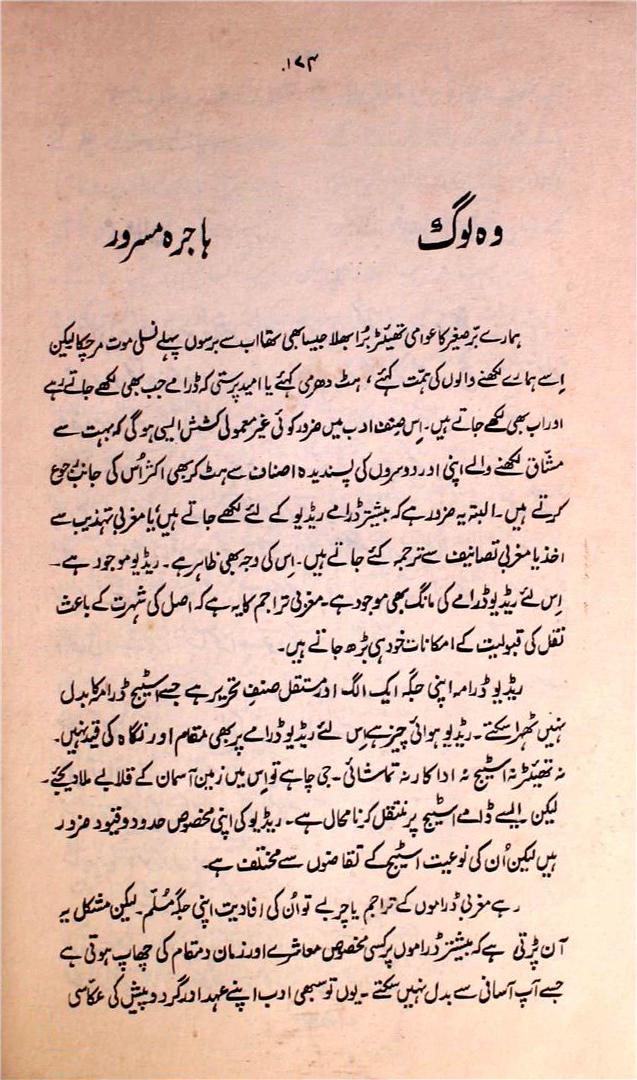 ۱۷۴
وہ لوگ ہاجرہ مسرور
ہمارے برّ صغیر کا عوامی تھیٹر بُرا بھلا جیسا بھی تھا اب سے برسوں پہلے نسلی موت مر چکا لیکن
اِسے ہمارے لکھنے والوں کی ہمت کہئے، ہٹ دھرمی کہئے یا امید پرستی کہ ڈرامے جب بھی لکھے جاتے رہے
اور اب بھی لکھے جاتے ہیں۔ اِس صنفِ ادب میں ضرور کوئی غیر معمولی کشش ایسی ہوگی کہ بہت سے
مشّاق لکھنے والے اپنی اور دوسروں کی پسندیدہ اصناف سے ہٹ کر بھی اکثر اُس کی جانب رجوع
کرتے ہیں۔ البتہ یہ ضرور ہے کہ بیشتر ڈرامے ریڈیو کے لئے لکھے جاتے ہیں یا مغربی تہذیب سے
اخذ یا مغربی تصانیف سے ترجمہ کئے جاتے ہیں۔ اِس کی وجہ بھی ظاہر ہے۔ ریڈیو موجود ہے۔
اِس لئے ریڈیو ڈرامے کی مانگ بھی موجود ہے۔ مغربی تراجم کا یہ ہے کہ اصل کی شہرت کے باعث
نقل کی قبولیت کے امکانات خود ہی بڑھ جاتے ہیں۔
ریڈیو ڈرامہ اپنی جگہ ایک الگ اور مستقل صنفِ تحریر ہے جسے اسٹیج ڈرامہ کا بدل
نہیں ٹھہرا سکتے۔ ریڈیو ہوائی چیز ہے اِس لئے ریڈیو ڈرامے پر بھی مقام اور نگاہ کی قید نہیں۔
نہ تھیٹر نہ اسٹیج نہ اداکار نہ تماشائی۔ جی چاہے تو اِس میں زمین آسمان کے قلابے ملا دیجئے۔
لیکن ایسے ڈرامے اسٹیج پر منتقل کرنا محال ہے۔ ریڈیو کی اپنی مخصوص حدود و قیود ضرور
ہیں لیکن اُن کی نوعیت اسٹیج کے تقاضوں سے مختلف ہے۔
رہے مغربی ڈراموں کے تراجم یا چربے تو اُن کی افادیت اپنی جگہ مُسلّم۔ لیکن مشکل یہ
آن پڑتی ہے کہ بیشتر ڈراموں پر کسی مخصوص معاشرے اور زمان و مقام کی چھاپ ہوتی ہے
جسے آپ آسانی سے بدل نہیں سکتے۔ یوں تو سبھی ادب اپنے عہد اور گرد و پیش کی عکاسی